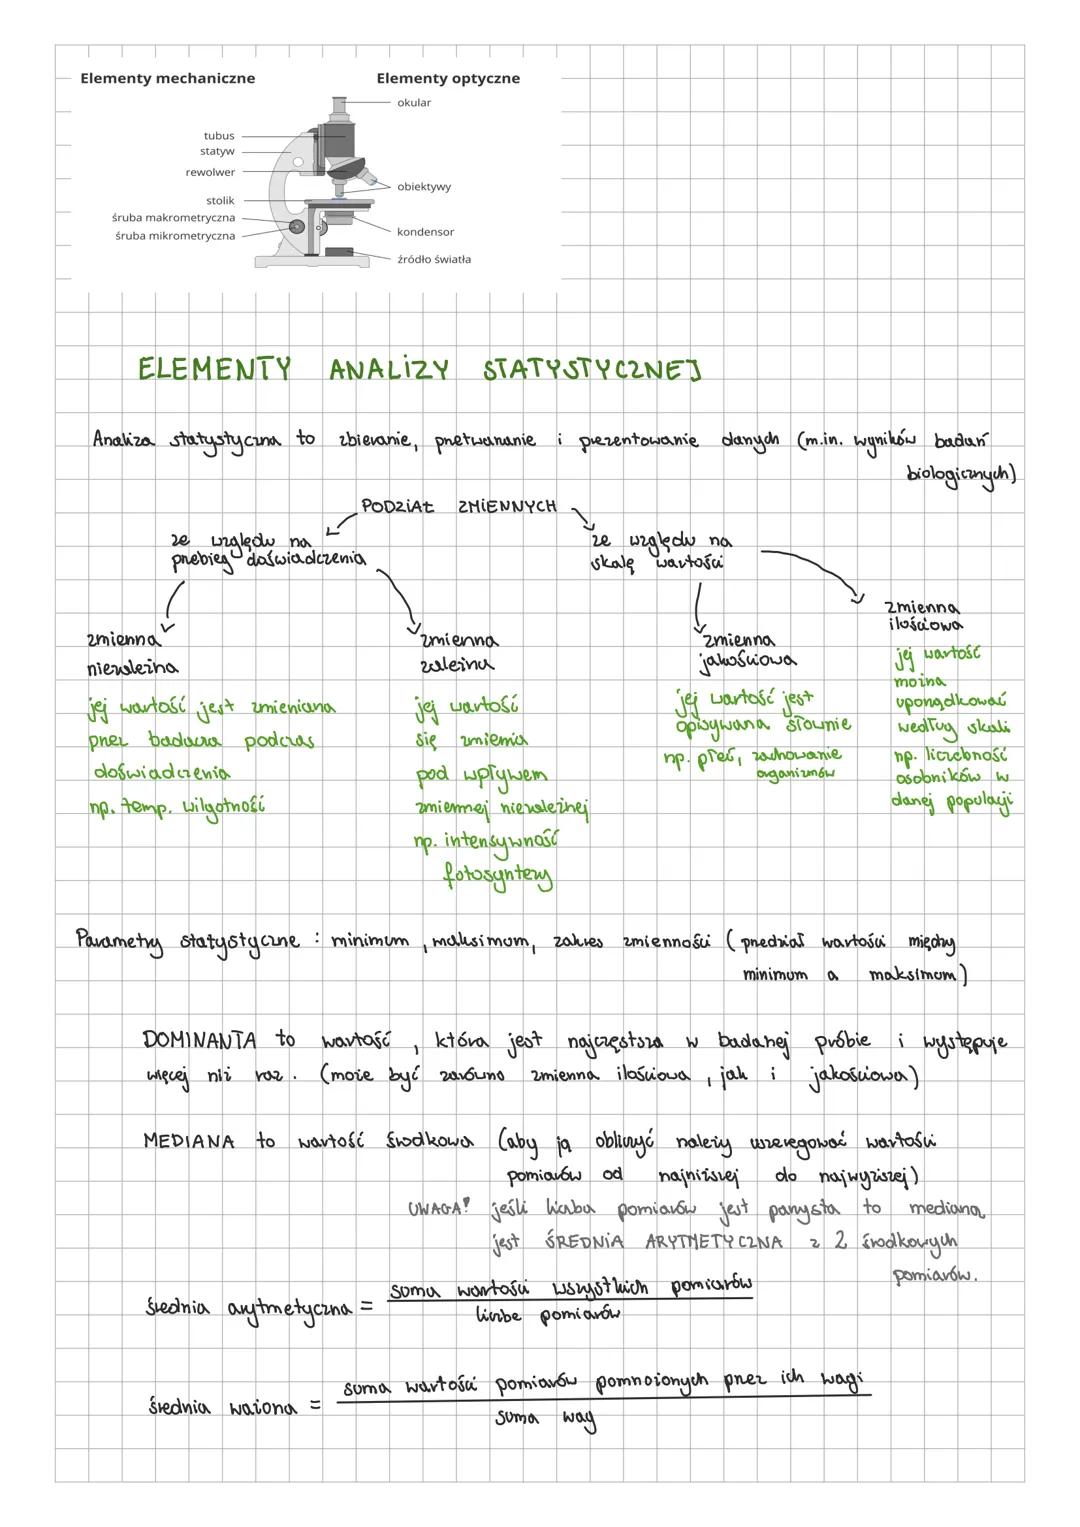 Elementy mechaniczne
Elementy optyczne
okular
tubus
statyw
rewolwer
obiektywy
stolik
śruba makrometryczna
kondensor
śruba mikrometryczna
źródło światła
ELEMENTY ANALIZY STATYSTYCZNEJ
Analiza statystyczna to zbieranie, przetwarzanie i prezentowanie danych (m.in. wyników badań
biologicznych)
PODZIAŁ ZMIENNYCH
ze względu na
przebieg doświadczenia
ze względu na
skalę wartości
zmienna
niezależna
jej wartość jest zmieniana
przez badacza podczas
doświadczenia
np. temp. wilgotność
zmienna
zależna
jej wartość
się zmienia
pod wpływem
zmiennej niezależnej
np. intensywność
fotosyntezy
zmienna
jakościowa
jej wartość jest
opisywana słownie
np. płeć, zachowanie
organizmów
zmienna
ilościowa
jej wartość
można
uporządkować
według skali
np. liczebność
osobników w
danej populacji
Parametry statystyczne : minimum , maksimum, zakres zmienności ( przedział wartości między
minimum a maksimum)
DOMINANTA to wartość , która jest najczęstsza w badanej próbie i występuje
więcej niż raz. (może być zarówno zmienna ilościowa , jak i jakościowa)
MEDIANA to wartość środkowa (aby ją obliczyć należy uszeregować wartości
pomiarów od najniższej do najwyższej)
UWAGA! jeśli liczba pomiarów jest parzysta to medianą
jest ŚREDNIA ARYTMETYCZNA z 2 środkowych
pomiarów.
średnia arytmetyczna = suma wartości wszystkich pomiarów
liczbę pomiarów
średnia ważona = suma wartości pomiarów pomnożonych przez ich wagi
suma wag